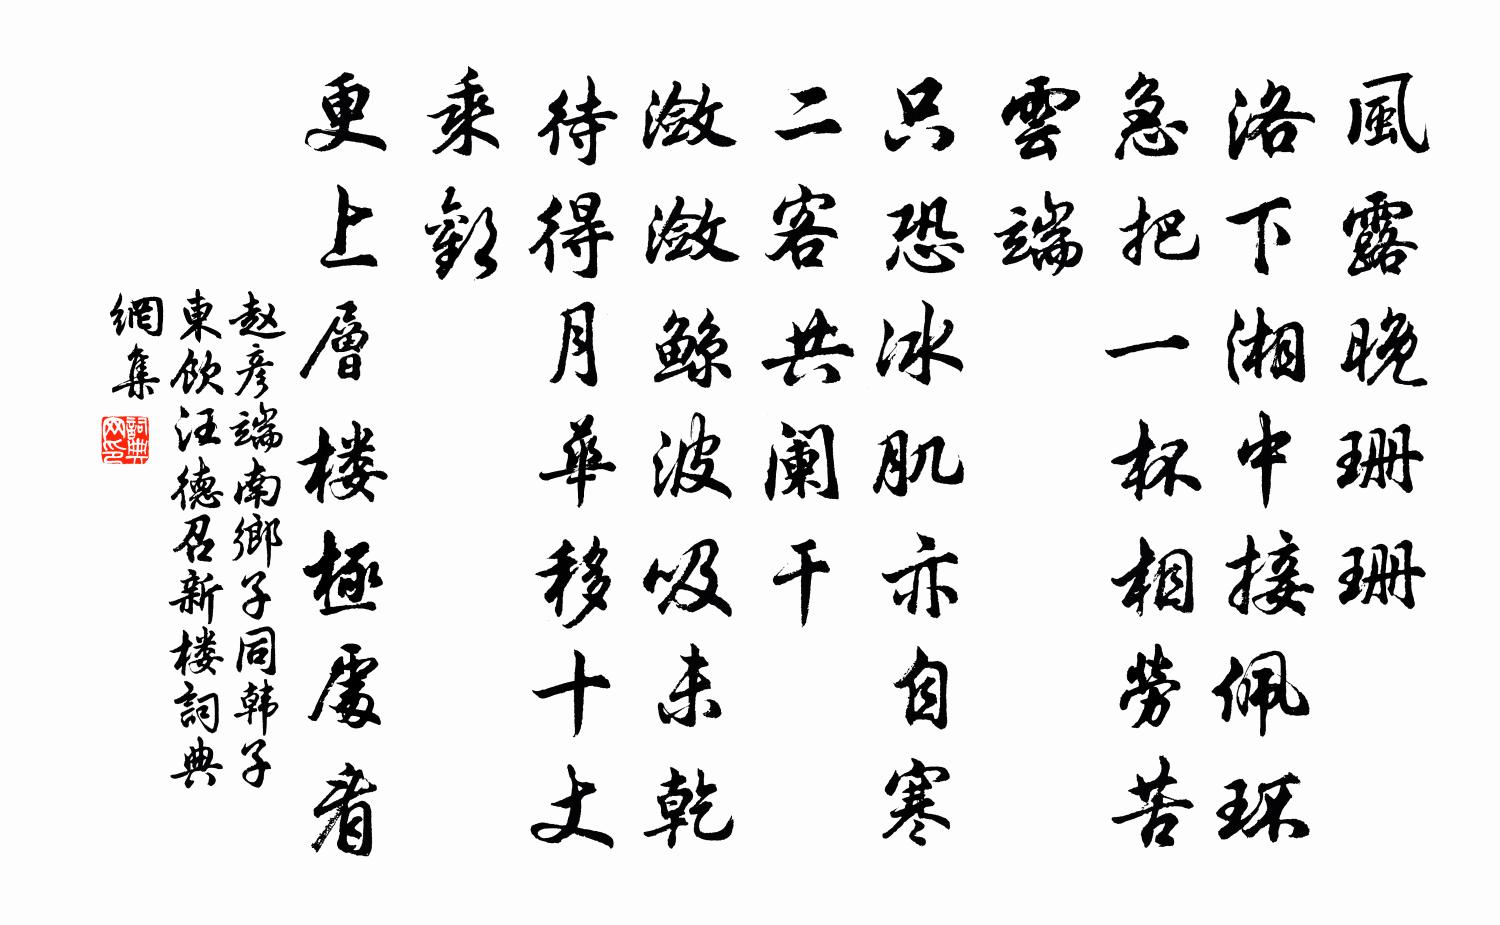 風露晚珊珊
洛下湘中接佩环
急把一杯相勞苦
雲端
只恐冰肌亦自寒
二客共阑干
瀲瀲鲸波吸未乾
待得月華移十丈
乘歡
更上層楼極處看
赵彦端南鄉子同韩子
東飲汪德召新楼詞典
網集
詞典
网印